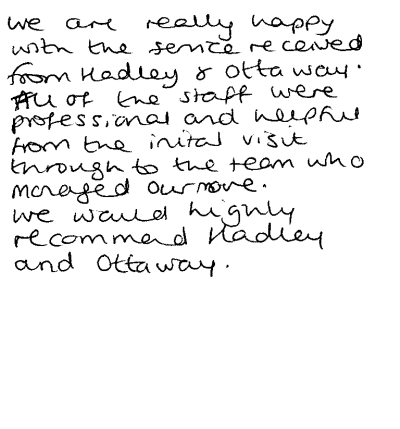 we are really happy
with the service received
from Hadley & Ottaway.
All of the staff were
professional and helpful
from the inital visit
through to the team who
managed our move.
We would highly
recommend Hadley
and Ottaway.